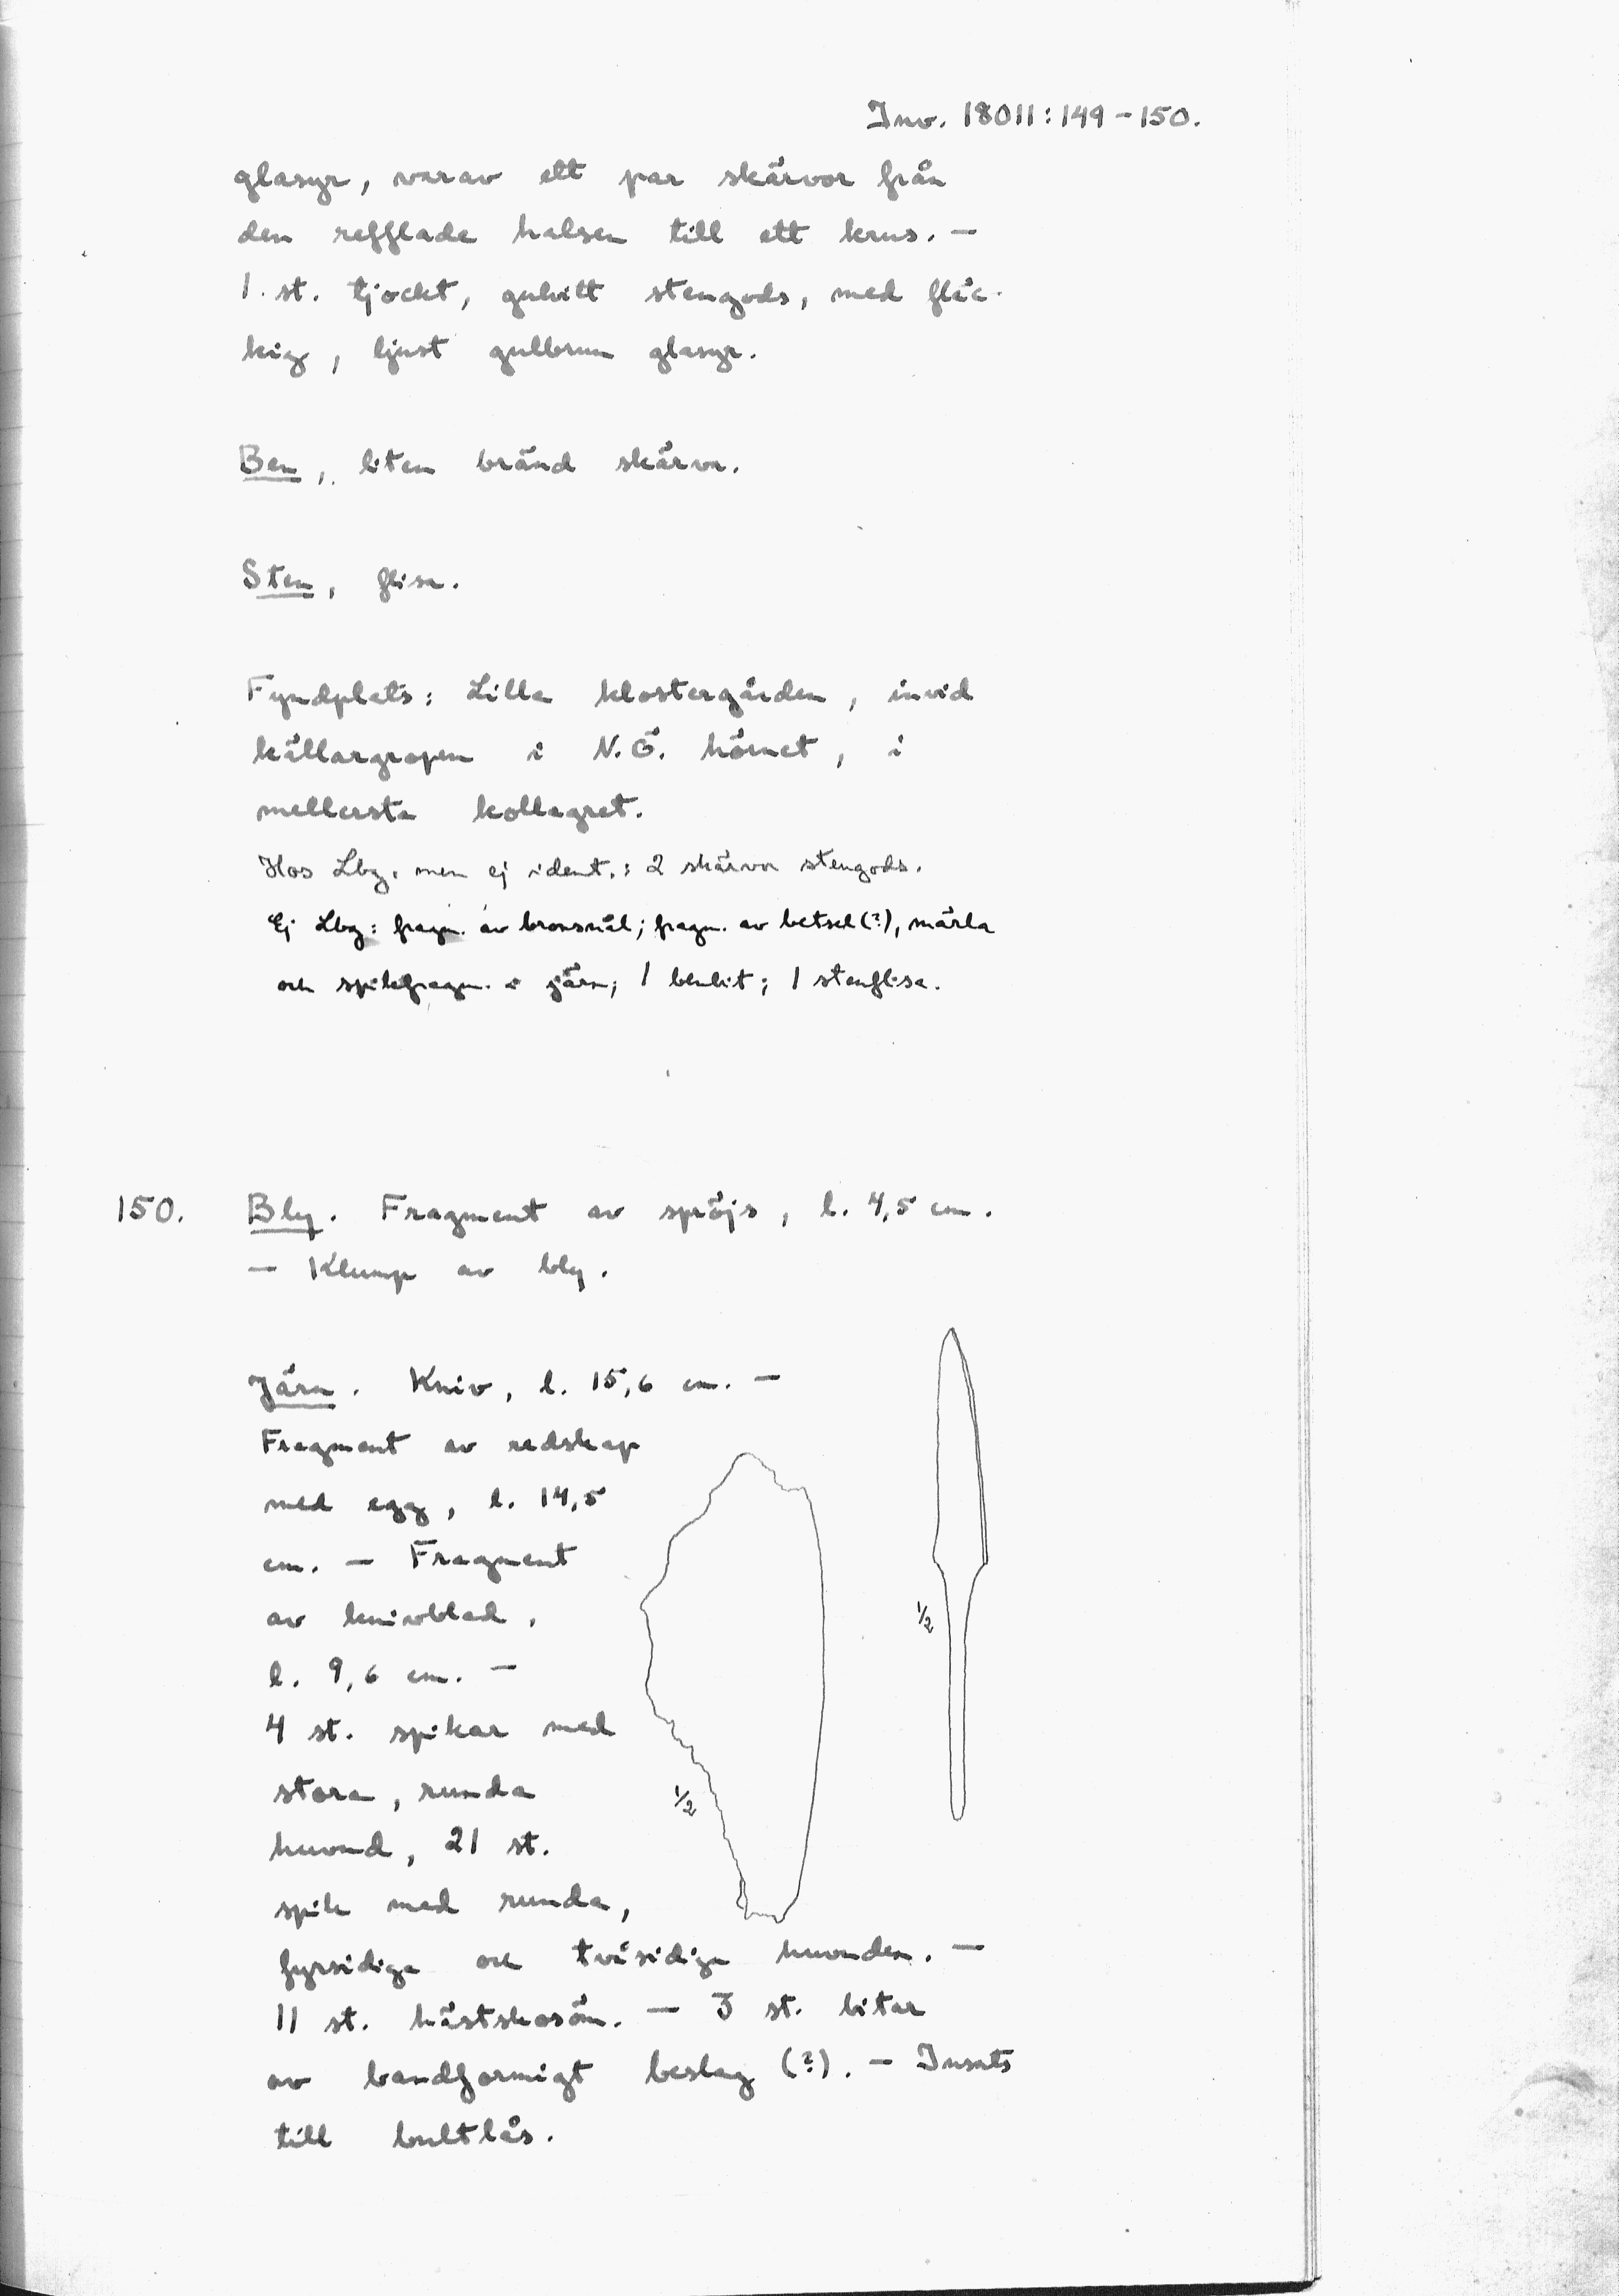 Inv. 18011:149-150.
glasyr, varav ett par skärvor från
den refflade halsen till ett krus. —
1 st. tjockt, gulvitt stengods, med fläc-
kig, ljust gulbrun glasyr.
Ben, liten bränd skärva.
Sten, flisa.
Fyndplats: Lilla klostergården, invid
källargropen i N.Ö. hörnet, i
mellersta kollagret.
Hos Lbg. men ej ident.: 2 skärvor stengods.
Ej Lbg: fragm. av bronsnål; fragm. av betsel(?), märla
och spikfragm. i järn; 1 benbit; 1 stenflisa.
150. Bly. Fragment av spröjs, l. 4,5 cm.
— Klump av bly.
Järn. Kniv, l. 15,6 cm. —
Fragment av redskap
med egg, l. 14,5
cm. — Fragment
av knivblad,
l. 9,6 cm. —
1/2
4 st. spikar med
stora, runda
1/2
huvud, 21 st.
spik med runda,
fyrsidiga och tvåsidiga huvuden. —
11 st. hästskosöm. — 3 st. bitar
av bandformigt beslag (?). — Insats
till bultlås.